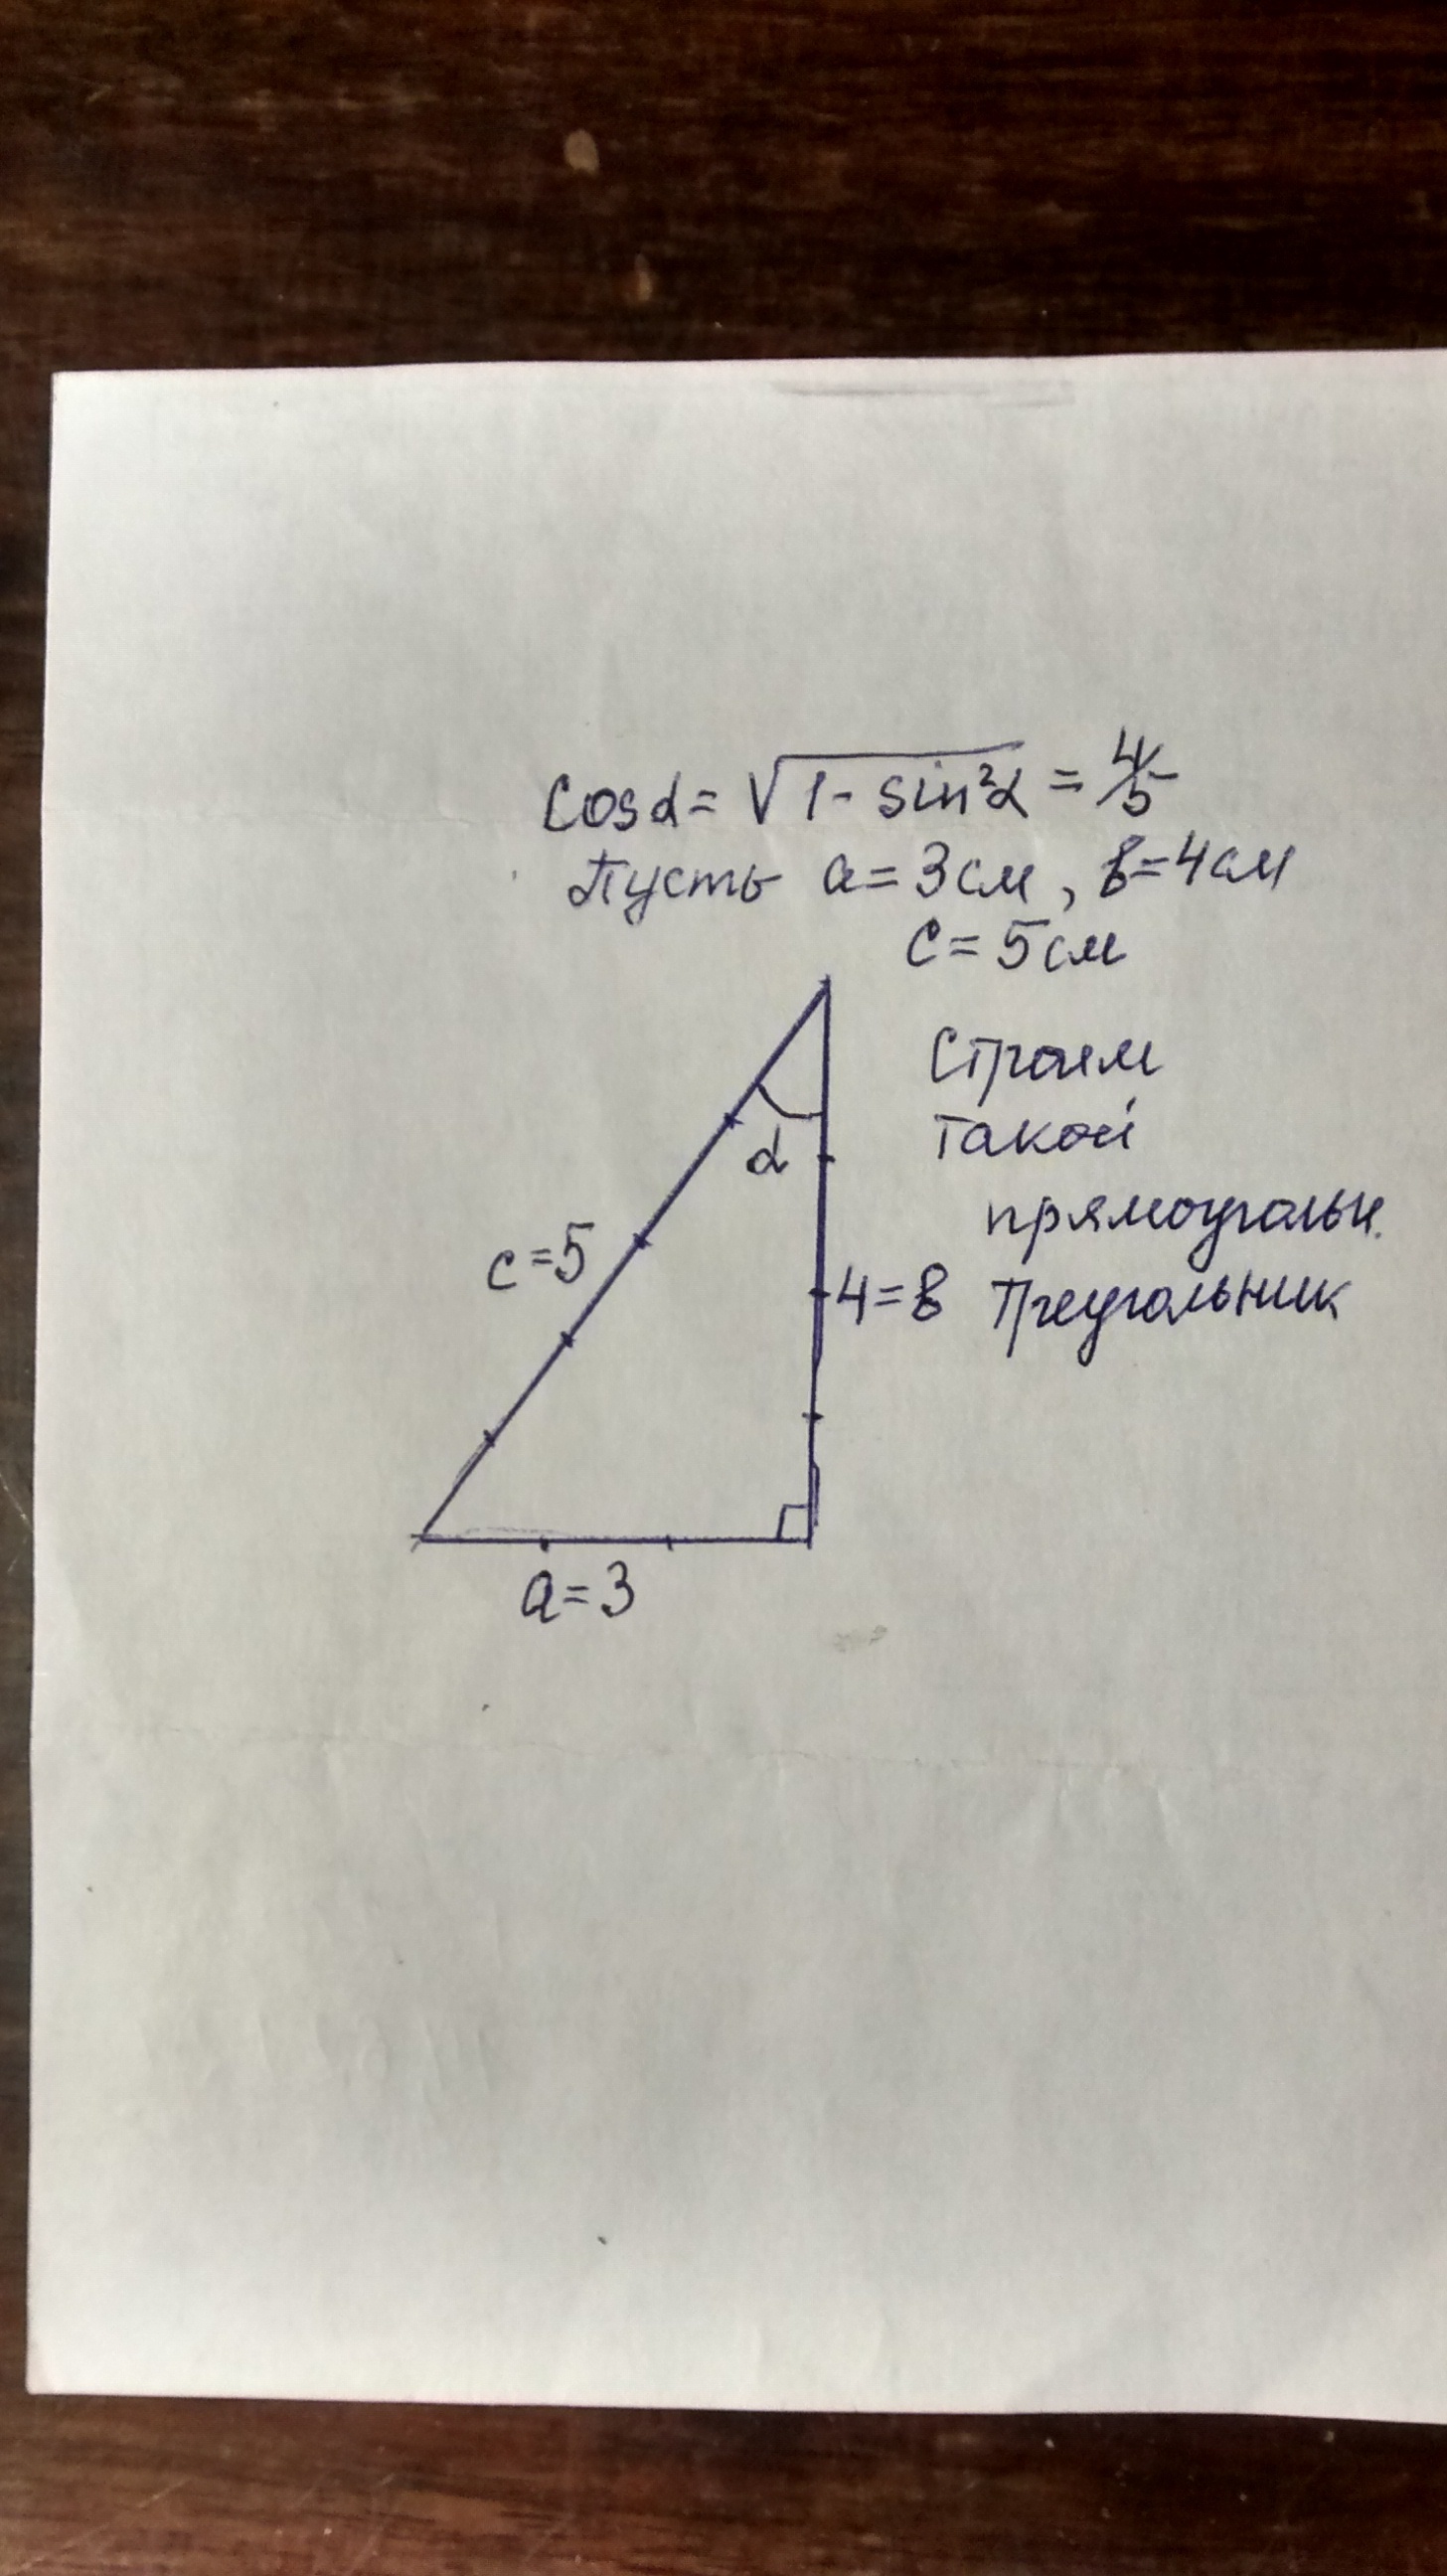 Cosα = √1 - sin²α = 4/5
Пусть a = 3 см, в = 4 см
c = 5 см
Строим
такой
прямоугольн.
треугольник
α
c = 5
4 = в
a = 3